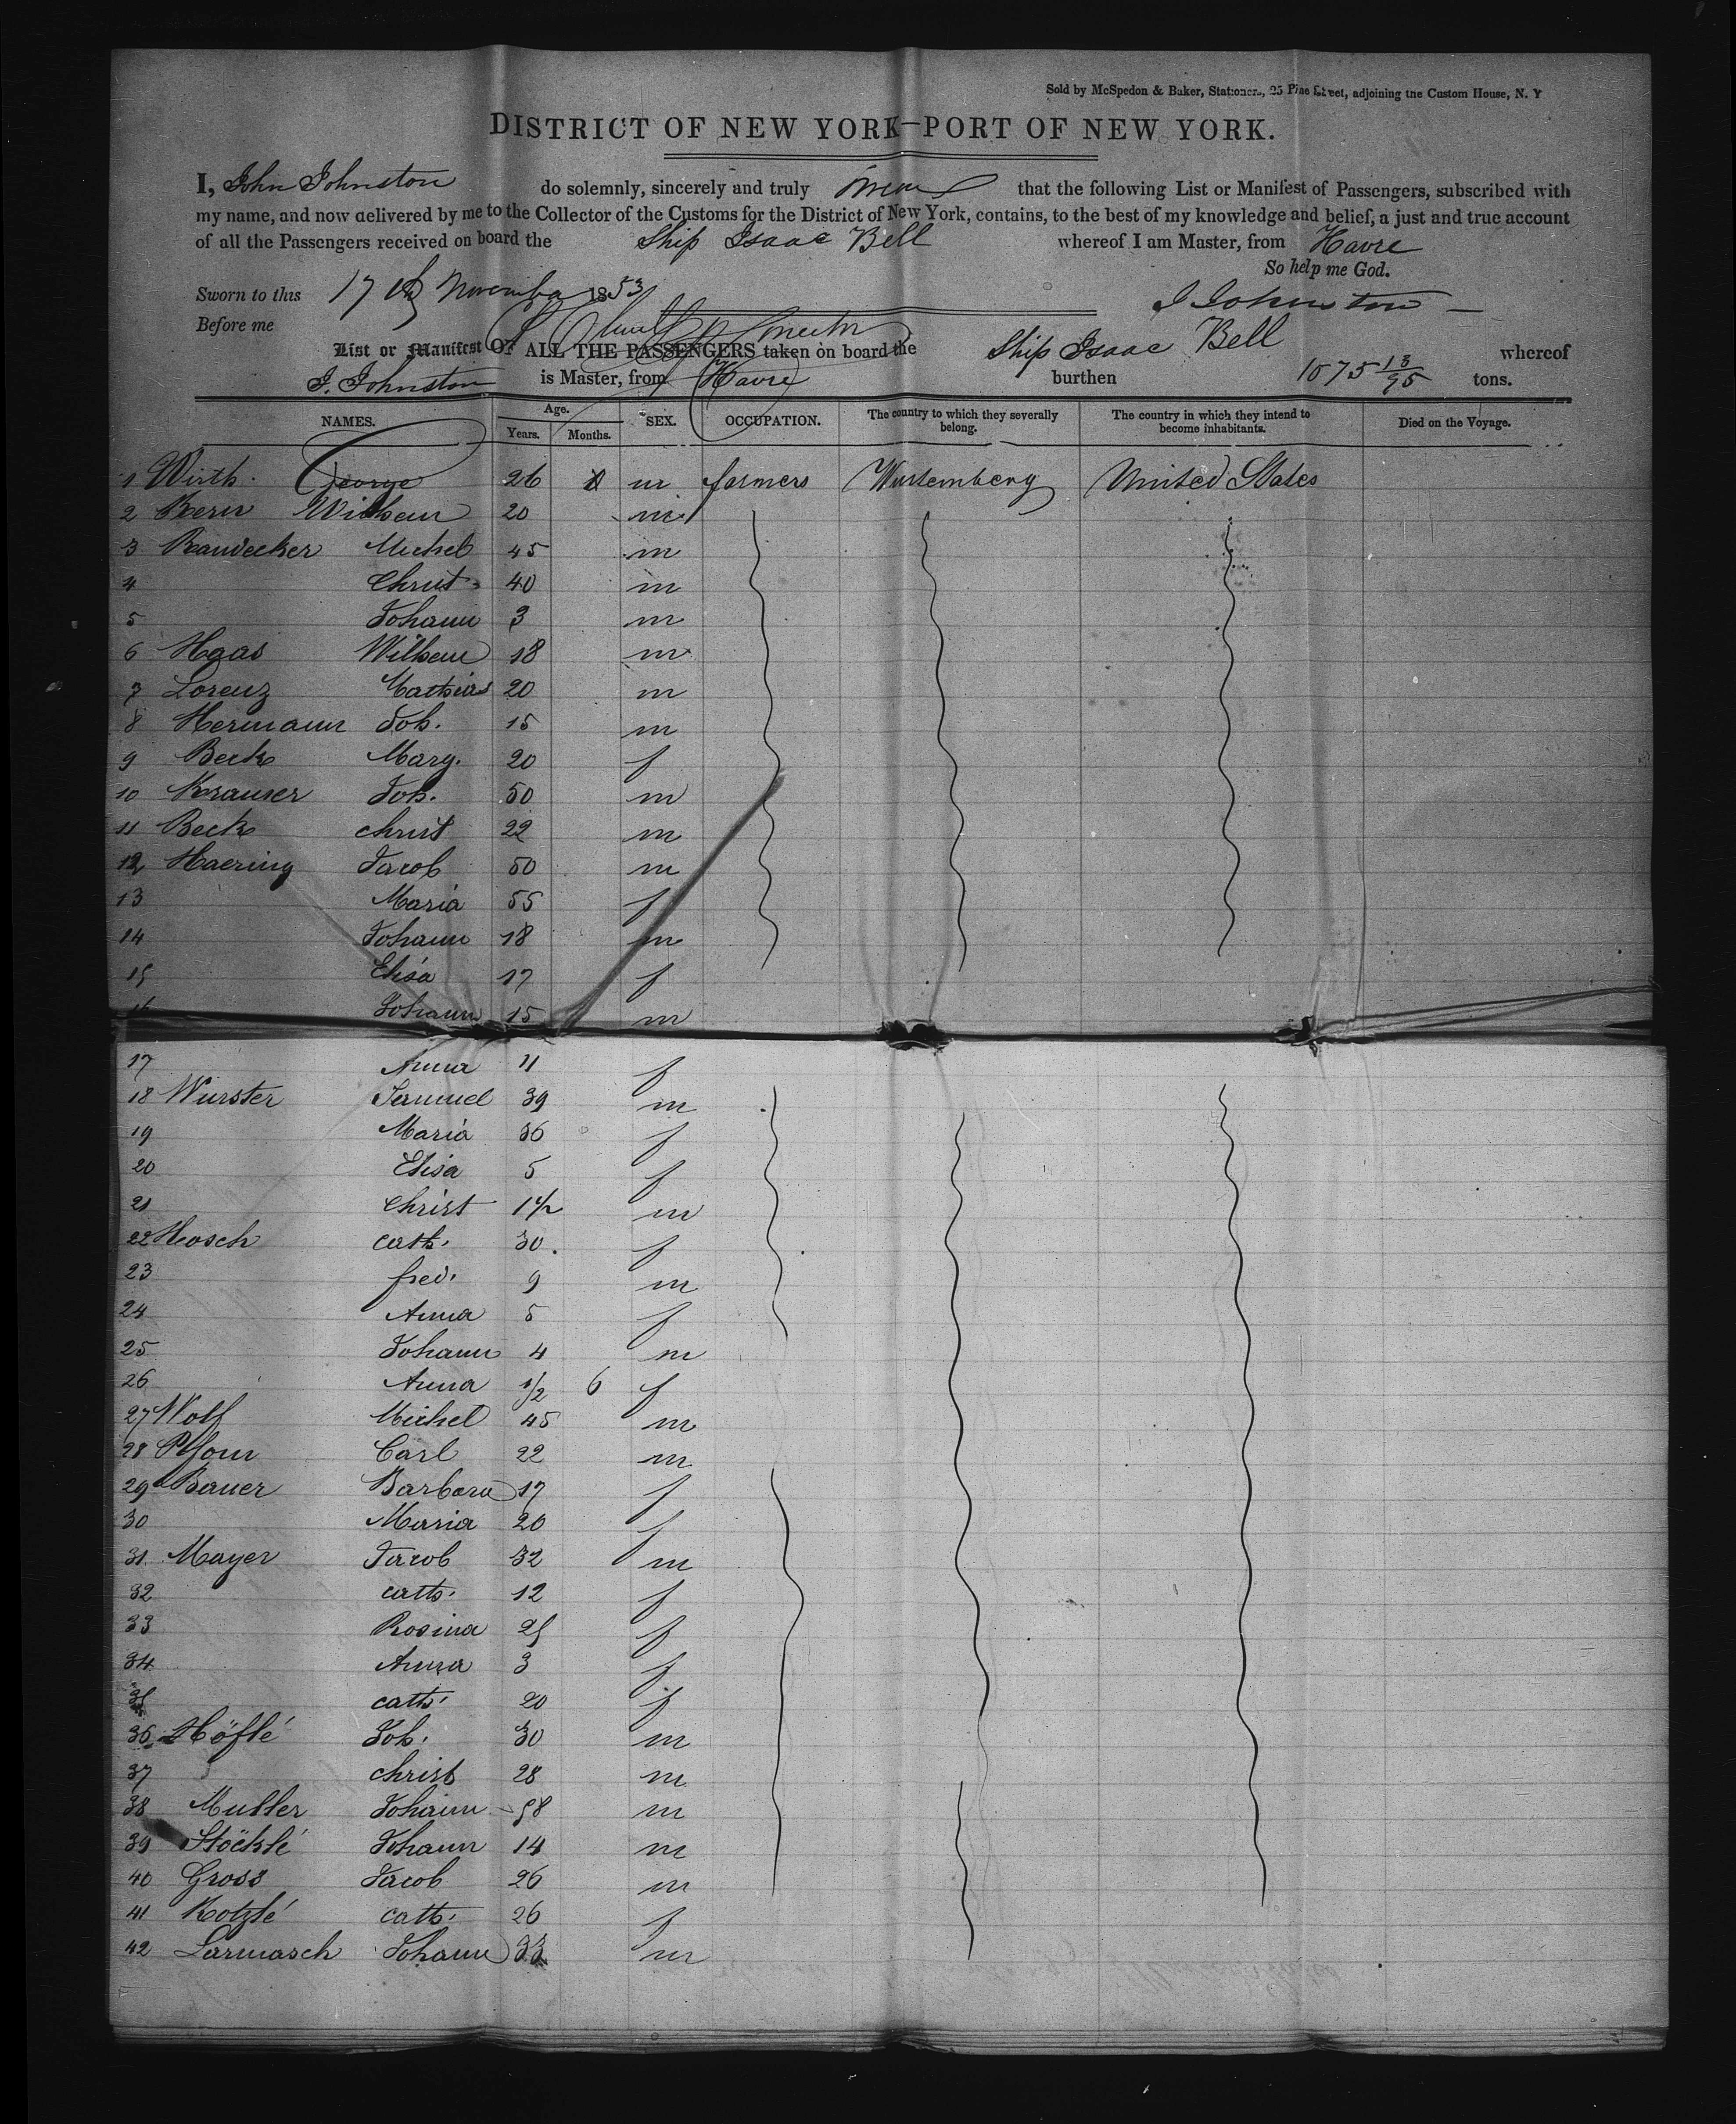 Sold by McSpedon & Baker, Stationers, 25 Pine Street, adjoining the Custom House, N. Y
DISTRICT OF NEW YORK—PORT OF NEW YORK.
I, John Johnston do solemnly, sincerely and truly swear that the following List or Manifest of Passengers, subscribed with
my name, and now delivered by me to the Collector of the Customs for the District of New York, contains, to the best of my knowledge and belief, a just and true account
of all the Passengers received on board the Ship Isaac Bell whereof I am Master, from Havre
So help me God.
Sworn to this 17th November 1853
J Johnston
Before me
List or Manifest OF ALL THE PASSENGERS taken on board the Ship Isaac Bell whereof
J. Johnston is Master, from Havre burthen 1075 13/95 tons.
NAMES. Age. Years. Months. SEX. OCCUPATION. The country to which they severally belong. The country in which they intend to become inhabitants. Died on the Voyage.
1 Wirth George 26 m farmers Wurtemberg United States
2 Kern Wilhem 20 m
3 Randecker Michel 45 m
4 Christ 40 m
5 Johann 3 m
6 Haas Wilhem 18 m
7 Lorenz Mathias 20 m
8 Hermann Joh. 15 m
9 Beck Marg. 20 f
10 Krauser Joh. 50 m
11 Beck christ 22 m
12 Haering Jacob 50 m
13 Maria 55 f
14 Johann 18 m
15 Elisa 17 f
16 Johann 15 m
17 Anna 11 f
18 Wurster Samuel 39 m
19 Maria 36 f
20 Elisa 5 f
21 Christ 1 1/2 m
22 Hosch cath. 30 f
23 fred. 9 m
24 Anna 5 f
25 Johann 4 m
26 Anna 1/2 6 f
27 Wolf Michel 45 m
28 Pfom Carl 22 m
29 Bauer Barbara 17 f
30 Maria 20 f
31 Mayer Jacob 32 m
32 cath. 12 f
33 Rosina 25 f
34 Anna 3 f
35 cath. 20 f
36 Höflé Joh. 30 m
37 christ 28 m
38 Muller Johann 58 m
39 Stöcklé Johann 14 m
40 Gross Jacob 26 m
41 Kotzlé cath. 26 f
42 Larmasch Johann 33 m